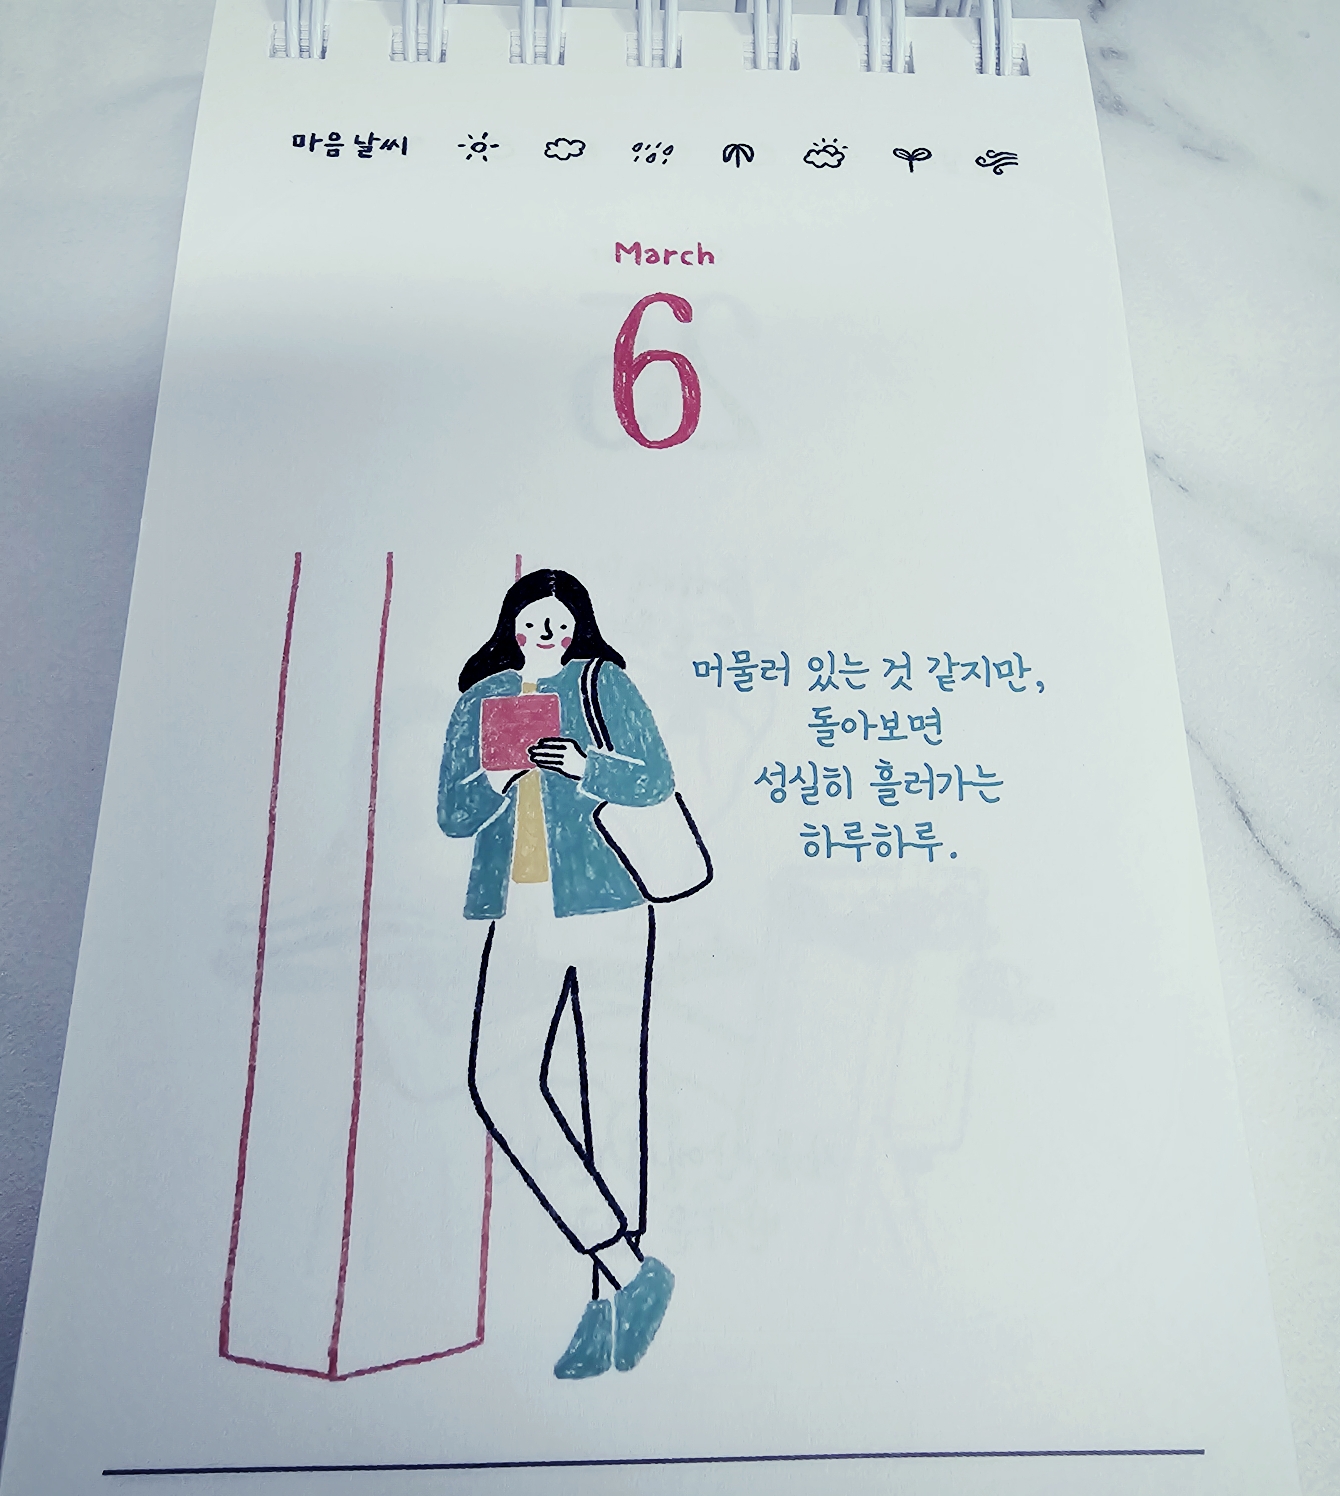 마음 날씨
March
6
머물러 있는 것 같지만,
돌아보면
성실히 흘러가는
하루하루.